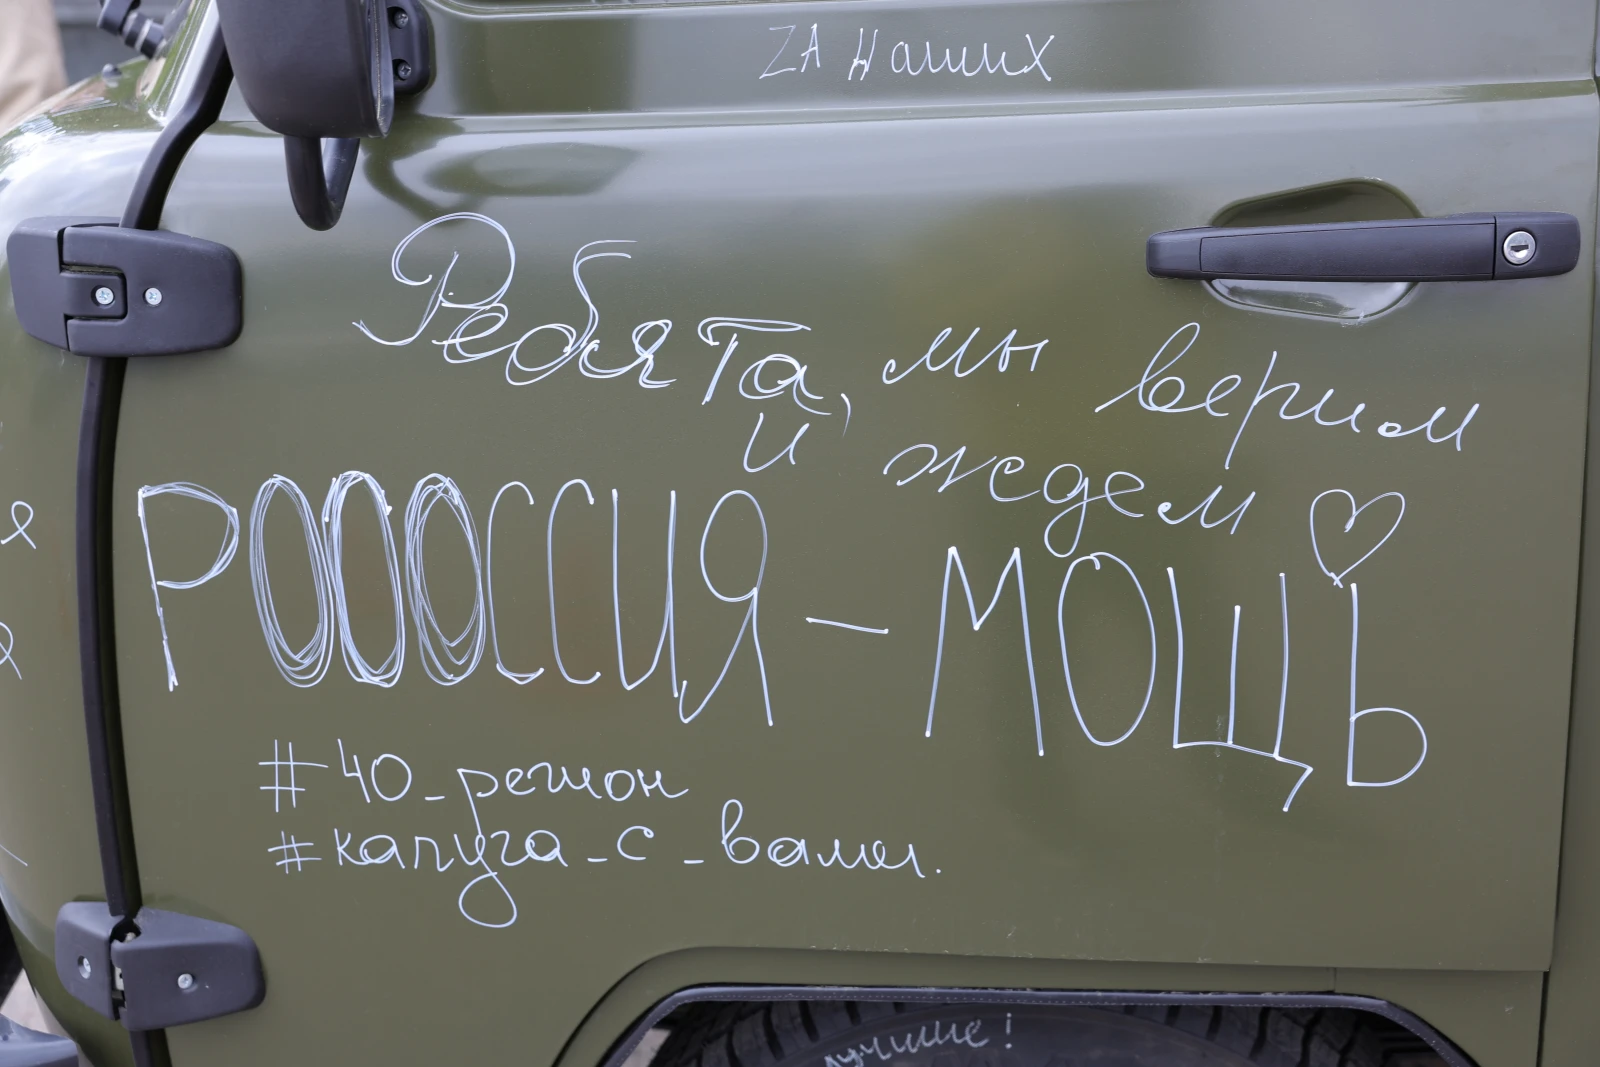 ZA НАших
Ребята, мы верим
и ждем
РОООССИЯ - МОЩЬ
#40_регион
#калуга_с_вами.
лучшие!